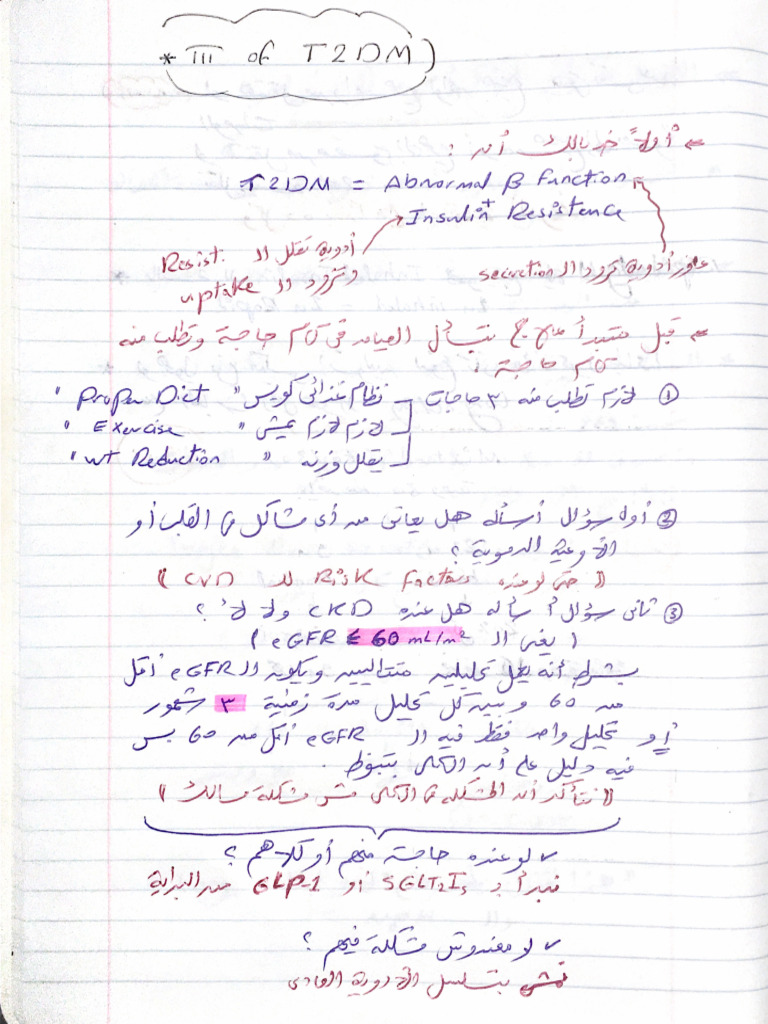 * TTT of T2DM
أولاً خد بالك أن :
T2DM = Abnormal β function
+
Insulin Resistence
أدوية تقلل الـ Resist.
وتزود الـ uptake
عاوز أدوية تزود الـ secretion
قبل متبدأ علاج بتسأل العيان في كام حاجة وتطلب منه
كام حاجة :
① لازم تطلب منه ٣ حاجات نظام غذائى كويس " Proper Diet "
لازم لازم يمشى " Exercise "
يقلل وزنه " wt Reduction "
② أول سؤال أسأله هل يعانى من أى مشاكل فى القلب أو
الأوعية الدموية ؟
(( حتى لو عنده Risk Factors للـ CVD ))
③ تانى سؤال أسأله هل عنده CKD ولا لأ ؟
( يعنى الـ eGFR ≤ 60 mL/m² )
بشرط أنه يعمل تحليلين متتاليين ويكون الـ eGFR أقل
من 60 و بين كل تحليل مدة زمنية ٣ شهور
أو تحليل واحد فقط فيه الـ eGFR أقل من 60 بس
فيه دليل على أن الكلى بتبوظ .
(( نتأكد أن المشكلة فى الكلى مش مشكلة مسالك ))
✓ لو عنده حاجة منهم أو كلاهم ؟
نبدأ بـ SGLT2Is أو GLP-1 من البداية
✓ لو معندوش مشكلة فيهم ؟
نمشى بتسلسل الأدوية العادى